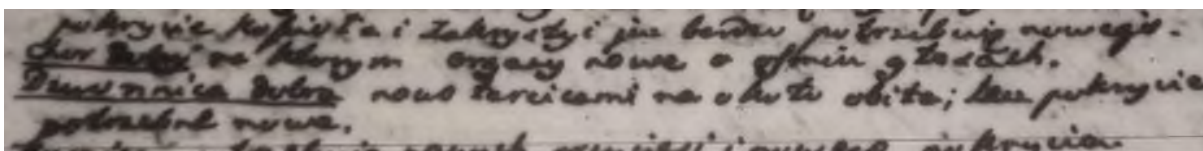 pokrycie kościoła i zakrystyi już bardzo potrzebuie nowego.
Chor dobry na ktorym organy nowe o ośmiu głosach.
Dzwonnica dobra nowo tarcicami na około obita; lecz pokrycie
potrzebne nowe.